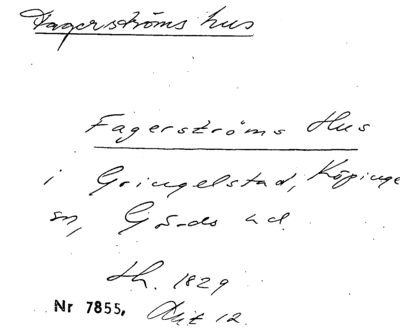 Fagerströms hus
Fagerströms Hus
i Gringelstad, Köpinge
sn, Gärds hd.
th. 1829
Nr 7855, Akt 12.